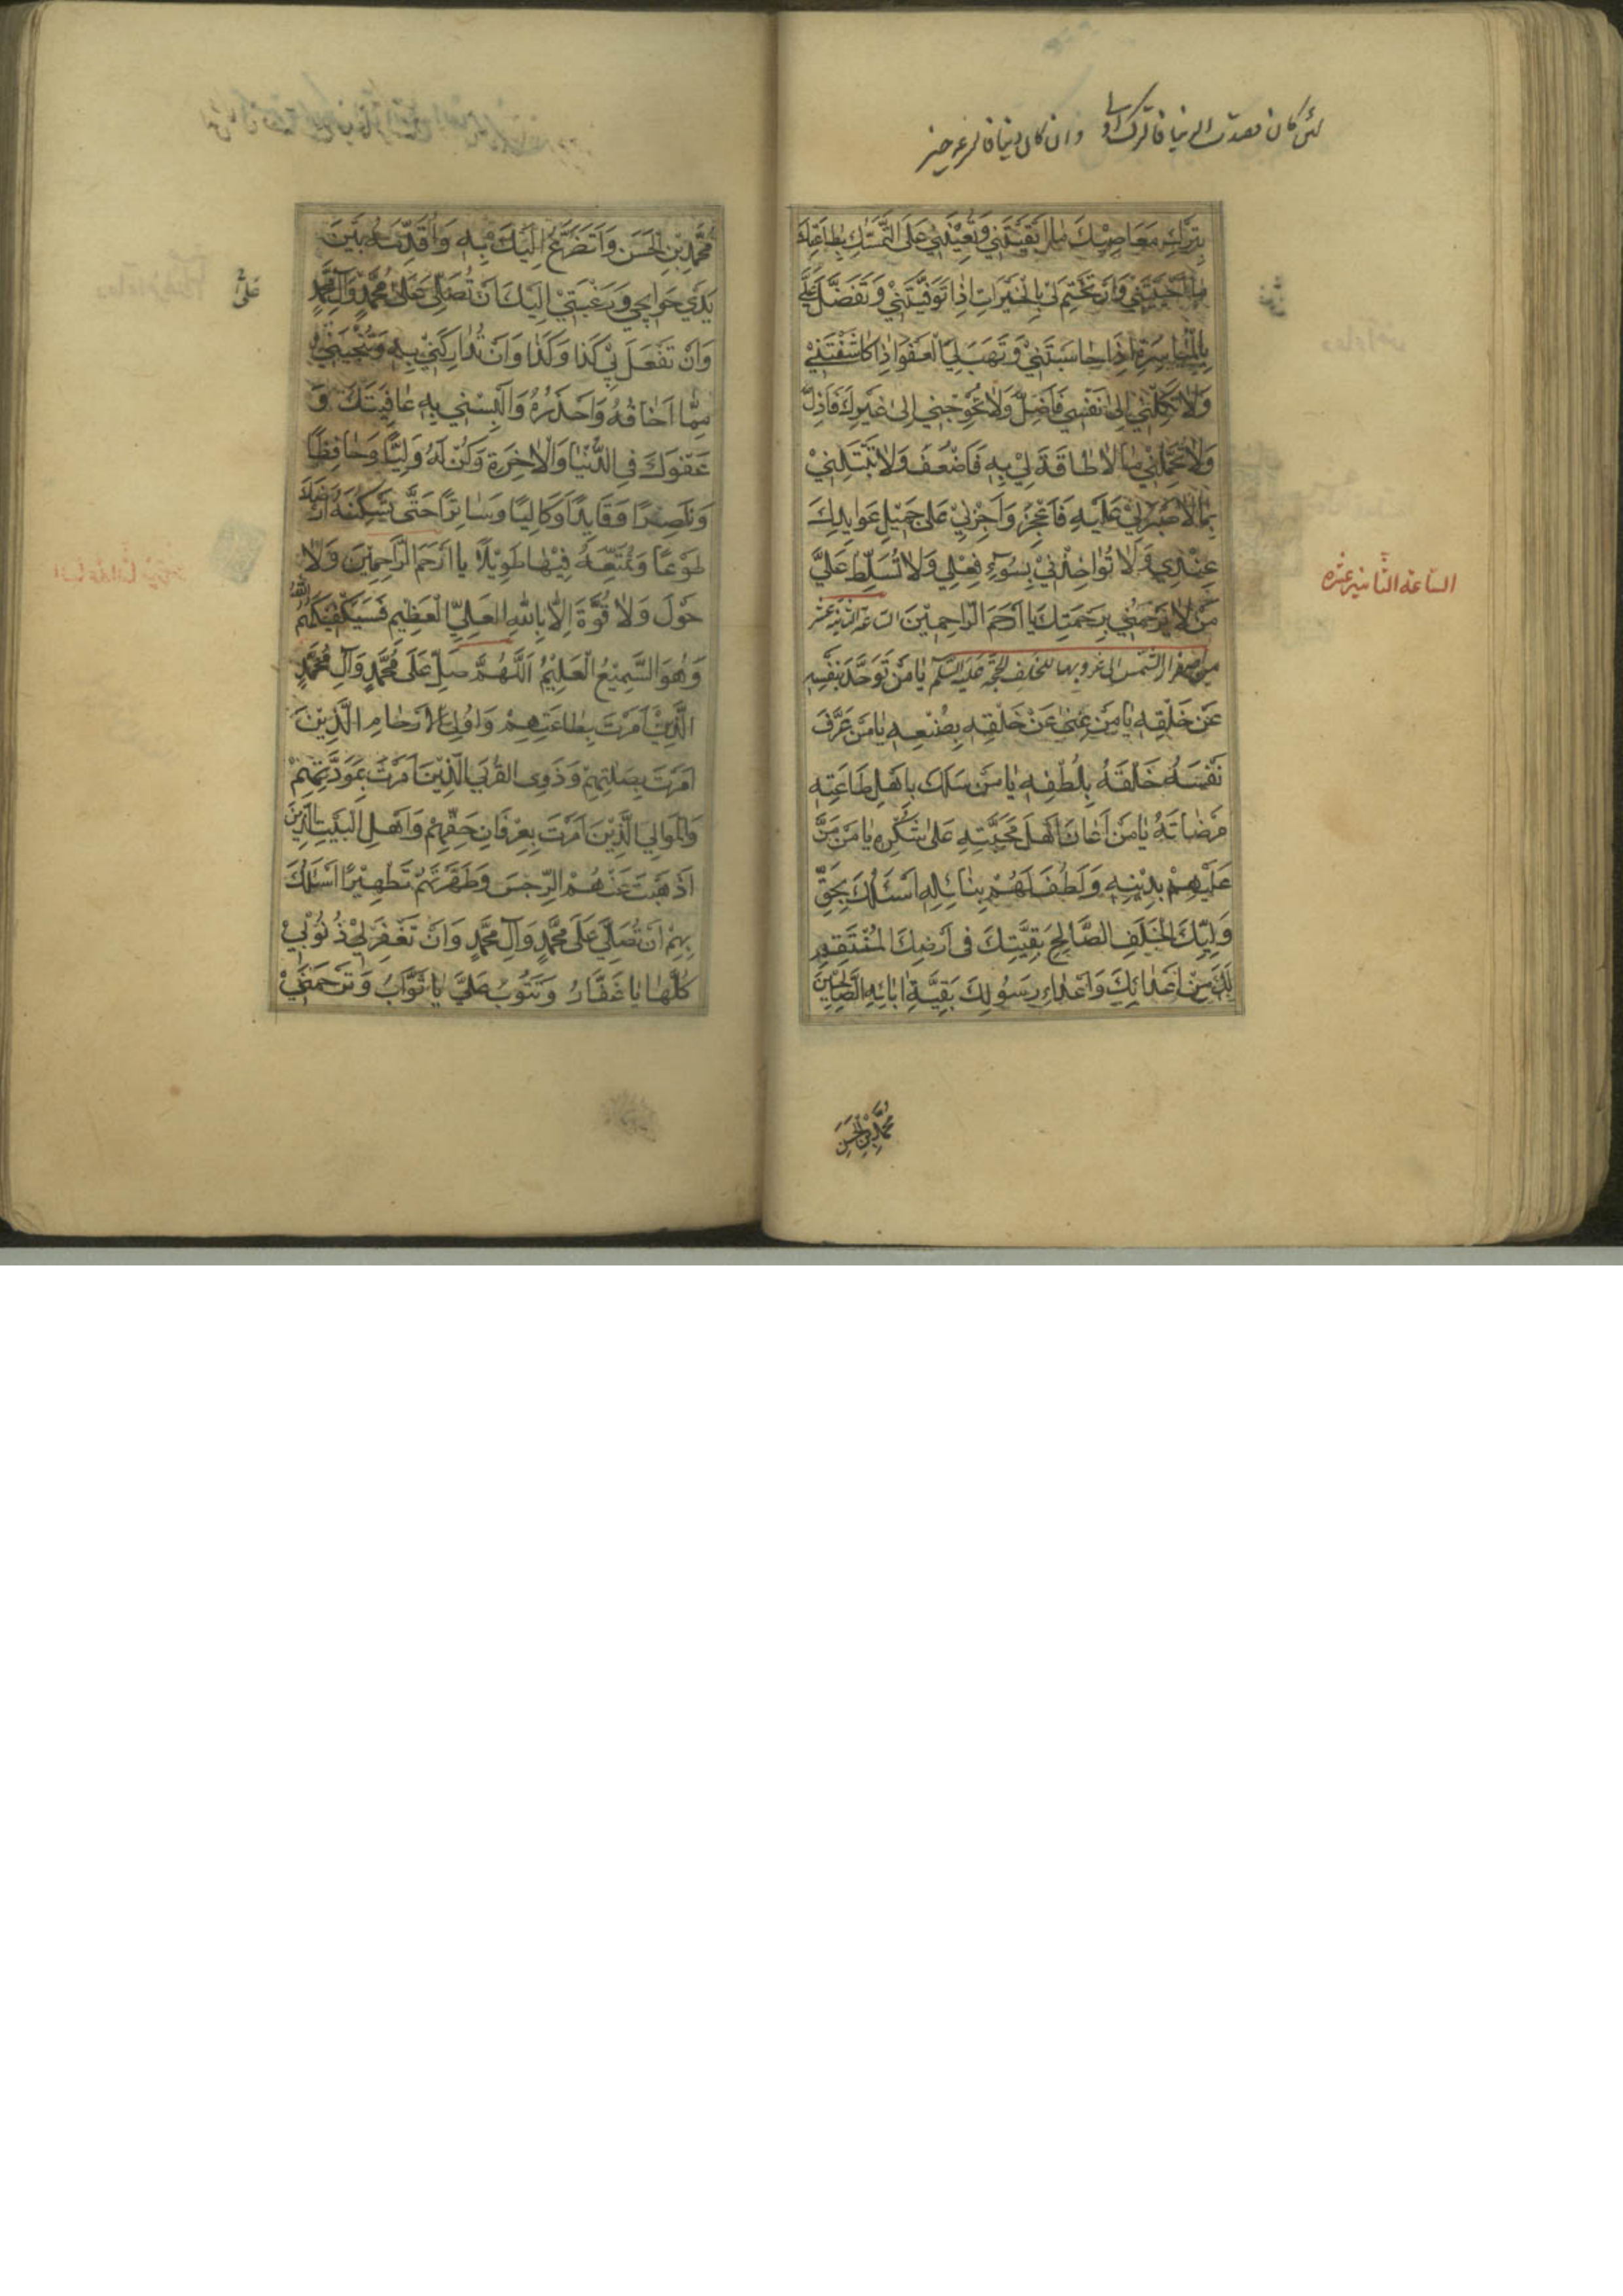 لئن كان قصدت الدنيا فاترك
وان كان دنيا
بِتَرْكِ مَعَاصِيكَ مَا اَبْقَيْتَنِي وَتُعِينَنِي عَلَى التَّمَسُّكِ بِطَاعَتِكَ
مَا اَحْيَيْتَنِي وَاَنْ تَخْتِمَ لِي بِالْخَيْرَاتِ اِذَا تَوَفَّيْتَنِي وَتَفَضَّلَ عَلَيَّ
بِالْمُيَاسَرَةِ اِذَا حَاسَبْتَنِي وَتَهَبَ لِيَ الْعَفْوَ اِذَا كَاشَفْتَنِي
وَلَا تَكِلْنِي اِلَى نَفْسِي فَاَضِلَّ وَلَا تُحْوِجْنِي اِلَى غَيْرِكَ فَاَذِلَّ
وَلَا تُحَمِّلْنِي مَا لَا طَاقَةَ لِي بِهِ فَاَضْعُفَ وَلَا تَبْتَلِنِي
بِمَا لَا صَبْرَ لِي عَلَيْهِ فَاَعْجِزَ وَاَجْرِنِي عَلَى جَمِيلِ عَوَايِدِكَ
عِنْدِي وَلَا تُؤَاخِذْنِي بِسُوءِ فِعْلِي وَلَا تُسَلِّطْ عَلَيَّ
مَنْ لَا يَرْحَمُنِي بِرَحْمَتِكَ يَا اَرْحَمَ الرَّاحِمِينَ الساعة الثانية عشر
من اصفرار الشمس الى غروبها للخلف الحجة عليه السلم يَا مَنْ تَوَحَّدَ بِنَفْسِهِ
عَنْ خَلْقِهِ يَا مَنْ غَنِيَ عَنْ خَلْقِهِ بِصُنْعِهِ يَا مَنْ عَرَّفَ
نَفْسَهُ خَلْقَهُ بِلُطْفِهِ يَا مَنْ سَلَكَ بِاَهْلِ طَاعَتِهِ
مَرْضَاتَهُ يَا مَنْ اَعَانَ اَهْلَ مَحَبَّتِهِ عَلَى شُكْرِهِ يَا مَنْ مَنَّ
عَلَيْهِمْ بِدِينِهِ وَلَطُفَ لَهُمْ بِنَائِلِهِ اَسْئَلُكَ بِحَقِّ
وَلِيِّكَ الْخَلَفِ الصَّالِحِ بَقِيَّتِكَ فِي اَرْضِكَ الْمُنْتَقِمِ
لَكَ مِنْ اَعْدَائِكَ وَاَعْدَاءِ رَسُولِكَ بَقِيَّةِ ابَائِهِ الصَّالِحِينَ
الساعة الثانية عشره
مُحَمَّدِ بْنِ الْحَسَنِ
مُحَمَّدِ بْنِ الْحَسَنِ وَاَتَضَرَّعُ اِلَيْكَ بِهِ وَاُقَدِّمُهُ بَيْنَ
يَدَيْ حَوَائِجِي وَرَغْبَتِي اِلَيْكَ اَنْ تُصَلِّيَ عَلَى مُحَمَّدٍ وَآلِ مُحَمَّدٍ
وَاَنْ تَفْعَلَ بِي كَذَا وَكَذَا وَاَنْ تُدَارِكَنِي بِهِ وَتُنْجِيَنِي
مِمَّا اَخَافُهُ وَاَحْذَرُهُ وَاَلْبِسْنِي بِهِ عَافِيَتَكَ وَ
عَفْوَكَ فِي الدُّنْيَا وَالْاخِرَةِ وَكُنْ لَهُ وَلِيًّا وَحَافِظًا
وَنَاصِرًا وَقَايِدًا وَكَالِيًا وَسَاتِرًا حَتَّى تُسْكِنَهُ اَرْضَكَ
طَوْعًا وَتُمَتِّعَهُ فِيهَا طَوِيلًا يَا اَرْحَمَ الرَّاحِمِينَ وَلَا
حَوْلَ وَلَا قُوَّةَ اِلَّا بِاللهِ الْعَلِيِّ الْعَظِيمِ فَسَيَكْفِيكَهُمُ اللهُ
وَهُوَ السَّمِيعُ الْعَلِيمُ اَللَّهُمَّ صَلِّ عَلَى مُحَمَّدٍ وَآلِ مُحَمَّدٍ
الَّذِينَ اَمَرْتَ بِطَاعَتِهِمْ وَاُولِي الْاَرْحَامِ الَّذِينَ
اَمَرْتَ بِصِلَتِهِمْ وَذَوِي الْقُرْبَى الَّذِينَ اَمَرْتَ بِمَوَدَّتِهِمْ
وَالْمَوَالِي الَّذِينَ اَمَرْتَ بِعِرْفَانِ حَقِّهِمْ وَاَهْلِ الْبَيْتِ الَّذِينَ
اَذْهَبْتَ عَنْهُمُ الرِّجْسَ وَطَهَّرْتَهُمْ تَطْهِيرًا اَسْئَلُكَ
بِهِمْ اَنْ تُصَلِّيَ عَلَى مُحَمَّدٍ وَآلِ مُحَمَّدٍ وَاَنْ تَغْفِرَ لِي ذُنُوبِي
كُلَّهَا يَا غَفَّارُ وَتَتُوبَ عَلَيَّ يَا تَوَّابُ وَتَرْحَمَنِي